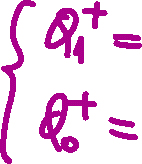 Q₁⁺ =
Q₀⁺ =